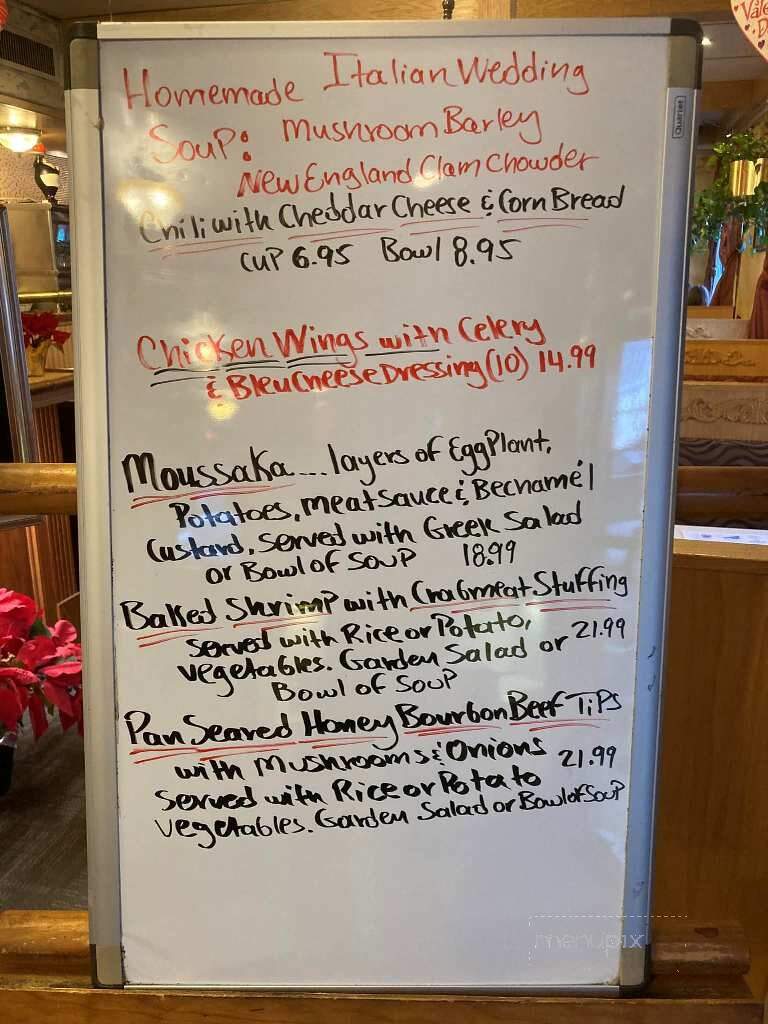 Homemade Italian Wedding
Soup: Mushroom Barley
New England Clam Chowder
Chili with Cheddar Cheese & Corn Bread
Cup 6.95 Bowl 8.95
Chicken Wings with Celery
& Bleu Cheese Dressing (10) 14.99
Moussaka... layers of EggPlant,
Potatoes, meat sauce & Bechamél
Custard, served with Greek Salad
or Bowl of Soup 18.99
Baked Shrimp with Crabmeat Stuffing
served with Rice or Potato, 21.99
vegetables. Garden Salad or
Bowl of Soup
Pan Seared Honey Bourbon Beef Tips
with Mushrooms & Onions 21.99
served with Rice or Potato
vegetables. Garden Salad or Bowl of Soup
Quartet
menupix